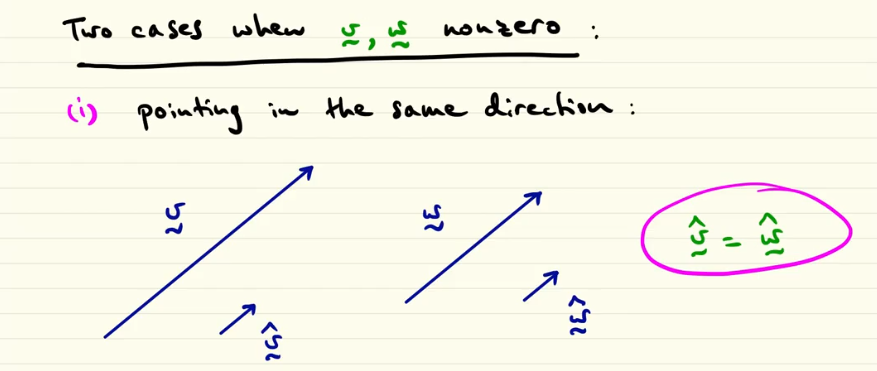 Two cases when v̰, w̰ nonzero :
(i) pointing in the same direction :
v̰
w̰
v̰̂ = ŵ̰
v̰̂
ŵ̰